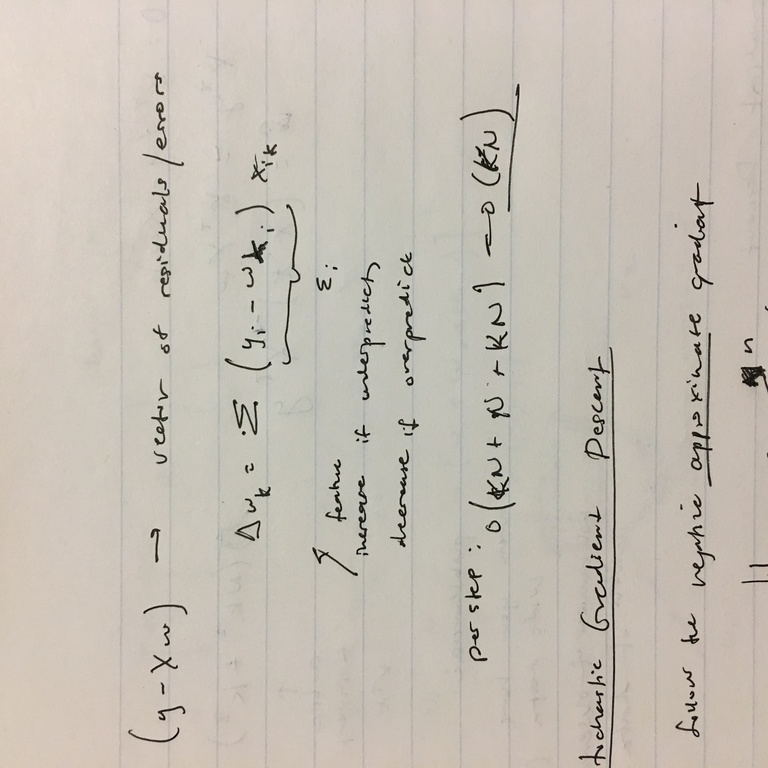 (y - Xw) → vector of residuals/errors
Δw_k = Σ (y_i - w x_i) x_ik
ε_i
feature
increase if underpredict,
decrease if overpredict
per step: O(KN + N + KN) = O(KN)
tochastic Gradient Descent
follow the negative approximate gradient
n